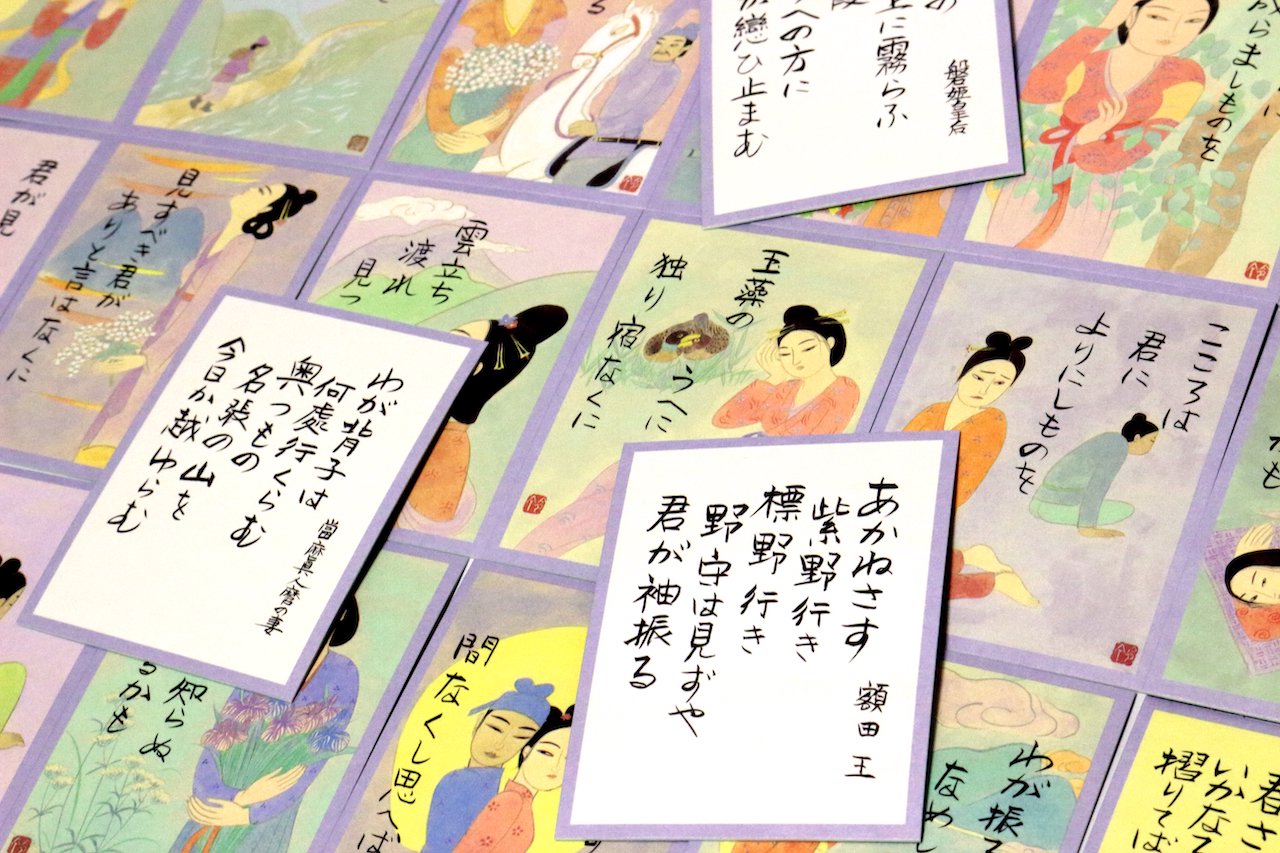 磐姫皇后
上に霧らふ
への方に
戀ひ止まむ
成らましものを
君が見
見すべき君が
ありと言はなくに
雲立ち
渡れ
見つ
玉藻の
うへに
独り宿なくに
こころは
君に
よりにしものを
かも
わが背子は
何處行くらむ
奥つもの
名張の山を
今日か越ゆらむ
當麻眞人麿の妻
あかねさす
紫野行き
標野行き
野守は見ずや
君が袖振る
額田王
知らぬ
るかも
間なくし思
へば
わが振
なめし
君さ
摺りてば